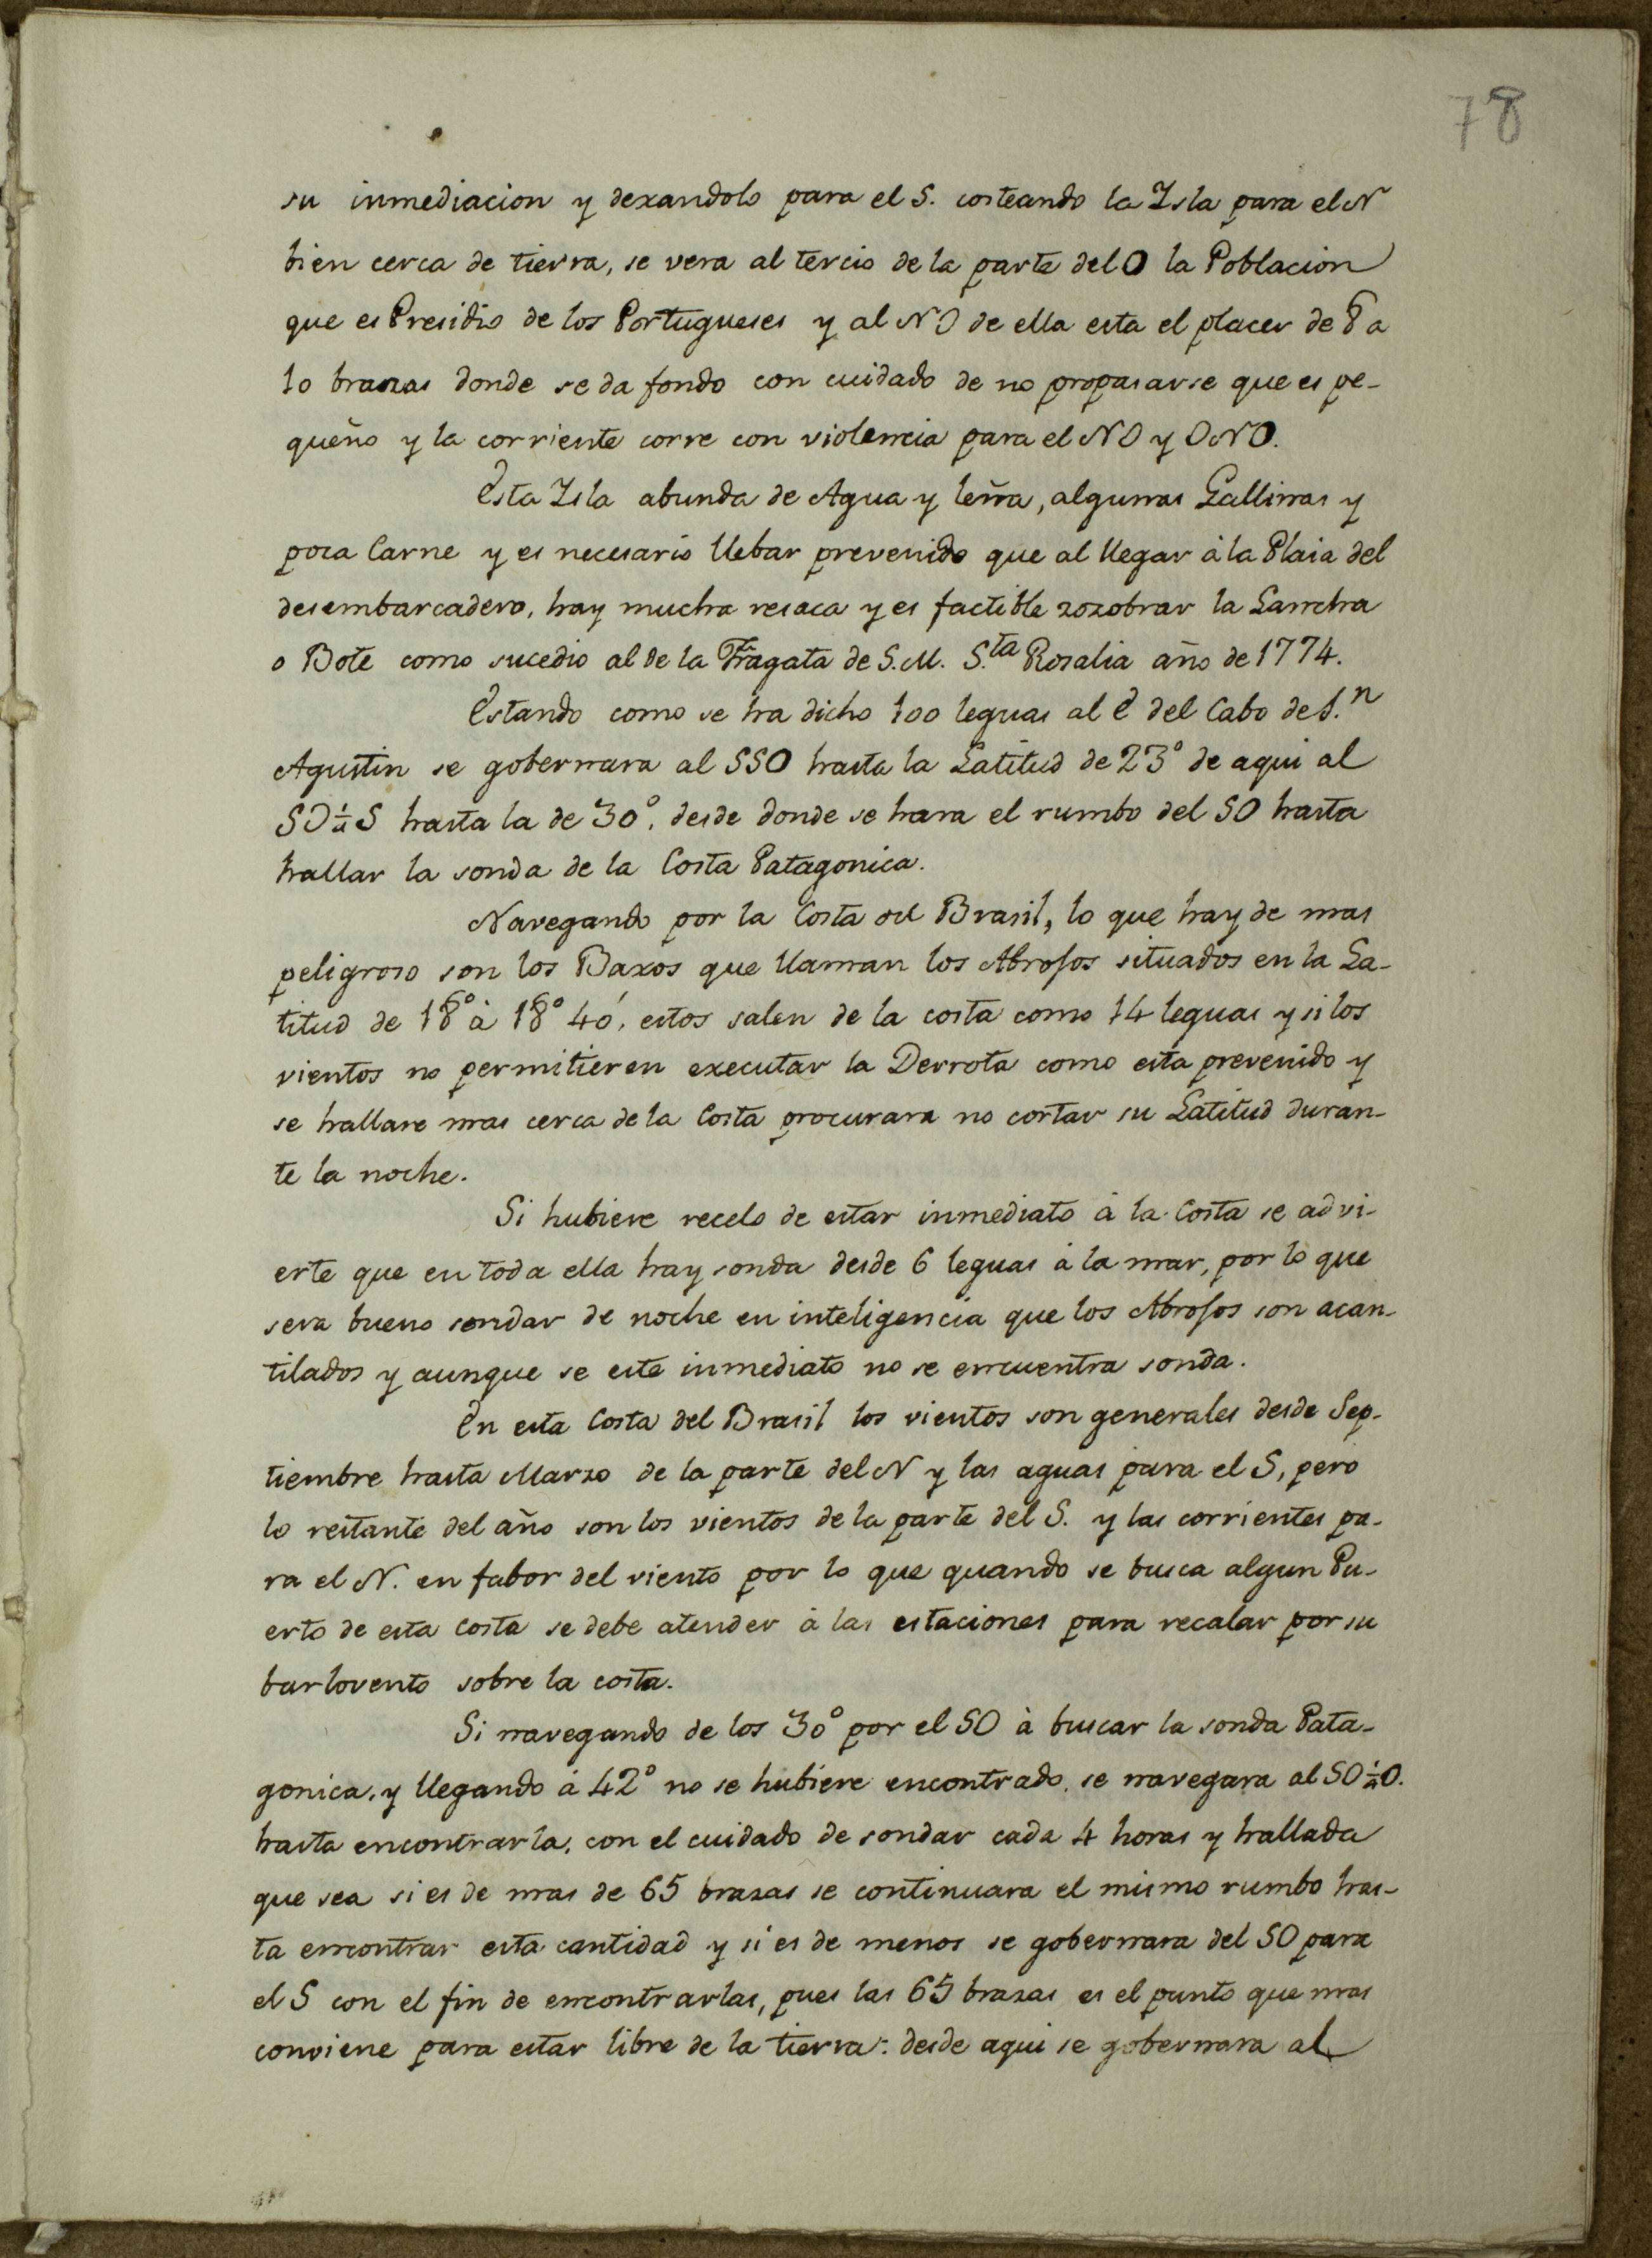 78
su inmediacion y dexandolo para el S. costeando la Isla para el N
bien cerca de tierra, se vera al tercio de la parte del O la Poblacion
que es Presidio de los Portugueses y al NO de ella esta el placer de 8 a
10 brazas donde se da fondo con cuidado de no propasarse que es pe-
queño y la corriente corre con violencia para el NO y ONO.
Esta Isla abunda de Agua y leña, algunas Gallinas y
poca Carne y es necesario llebar prevenido que al llegar à la Plaia del
desembarcadero, hay mucha resaca y es factible zozobrar la Lancha
o Bote como sucedio al de la Fragata de S.M. S.ta Rosalia año de 1774.
Estando como se ha dicho 100 leguas al E del Cabo de S.n
Agustin se gobernara al SSO hasta la Latitud de 23° de aqui al
SO¼S hasta la de 30°, desde donde se hara el rumbo del SO hasta
hallar la sonda de la Costa Patagonica.
Navegando por la Costa del Brasil, lo que hay de mas
peligroso son los Baxos que llaman los Abrojos situados en la La-
titud de 18° à 18° 40', estos salen de la costa como 14 leguas y si los
vientos no permitieren executar la Derrota como esta prevenido y
se hallare mas cerca de la Costa procurara no cortar su Latitud duran-
te la noche.
Si hubiere recelo de estar inmediato à la Costa se advi-
erte que en toda ella hay sonda desde 6 leguas à la mar, por lo que
sera bueno sondar de noche en inteligencia que los Abrojos son acan-
tilados y aunque se este inmediato no se encuentra sonda.
En esta Costa del Brasil los vientos son generales desde Sep-
tiembre hasta Marzo de la parte del N y las aguas para el S, pero
lo restante del año son los vientos de la parte del S. y las corrientes pa-
ra el N. en fabor del viento por lo que quando se busca algun Pu-
erto de esta Costa se debe atender à las estaciones para recalar por su
barlovento sobre la costa.
Si navegando de los 30° por el SO à buscar la sonda Pata-
gonica, y llegando à 42° no se hubiere encontrado, se navegara al SO¼O.
hasta encontrarla, con el cuidado de sondar cada 4 horas y hallada
que sea si es de mas de 65 brazas se continuara el mismo rumbo has-
ta encontrar esta cantidad y si es de menos se gobernara del SO para
el S con el fin de encontrarlas, pues las 65 brazas es el punto que mas
conviene para estar libre de la tierra: desde aqui se gobernara al